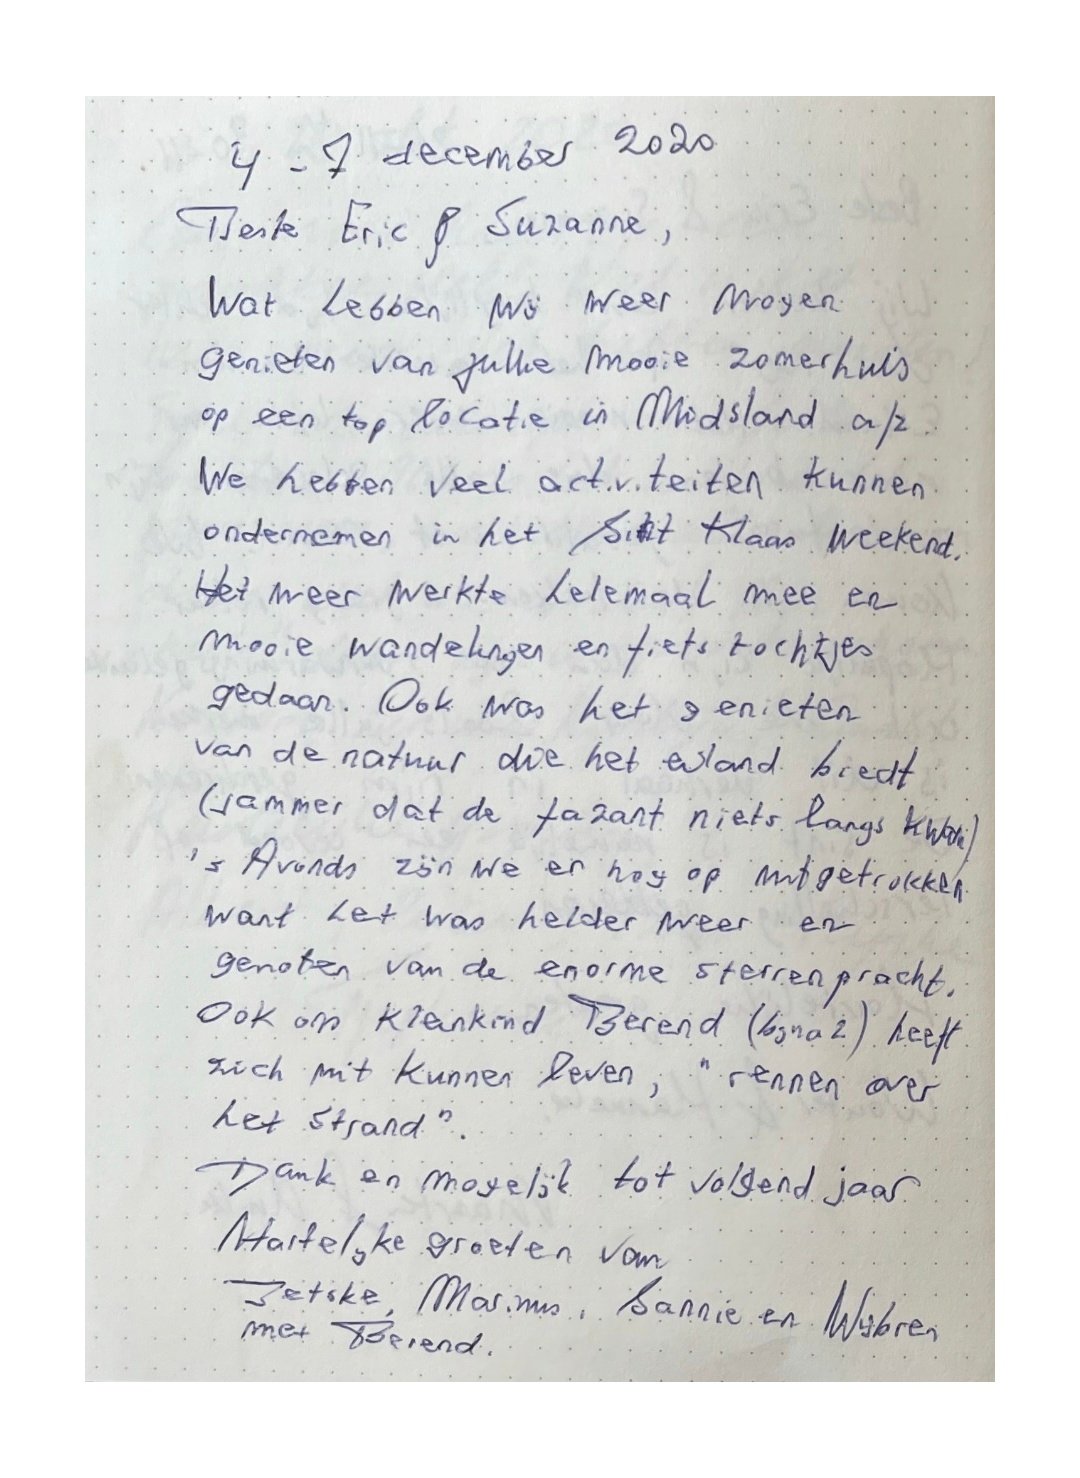 4 - 7 december 2020
Beste Eric & Suzanne,
Wat hebben wij weer mogen
genieten van jullie mooie zomerhuis
op een top locatie in Midsland a/z.
We hebben veel activiteiten kunnen
ondernemen in het Sint Klaas weekend.
Het weer werkte helemaal mee en
mooie wandelingen en fiets tochtjes
gedaan. Ook was het genieten
van de natuur die het eiland biedt
(jammer dat de fazant niets langs kwam)
's Avonds zijn we er nog op uitgetrokken
want het was helder weer en
genoten van de enorme sterrenpracht.
Ook ons kleinkind Berend (bijna 2) heeft
zich uit kunnen leven, "rennen over
het strand".
Dank en mogelijk tot volgend jaar
Hartelijke groeten van
Jetske, Marinus, Sannie en Wijbren
met Berend.